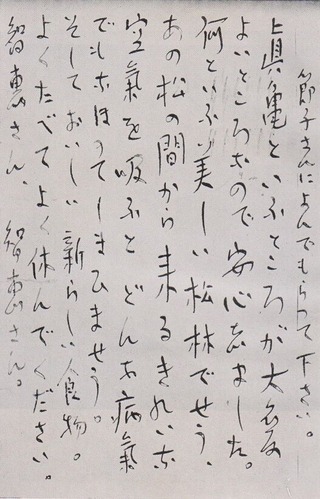 節子さんによんでもらつて下さい。
真亀といふところが大変
よいところなので安心しました。
何といふ美しい松林でせう、
あの松の間から来るきれいな
空氣を吸ふとどんな病氣
でもなほつてしまひませう。
そしておいしい新らしい食物。
よくたべてよく休んでください。
智恵さん、智恵さん。